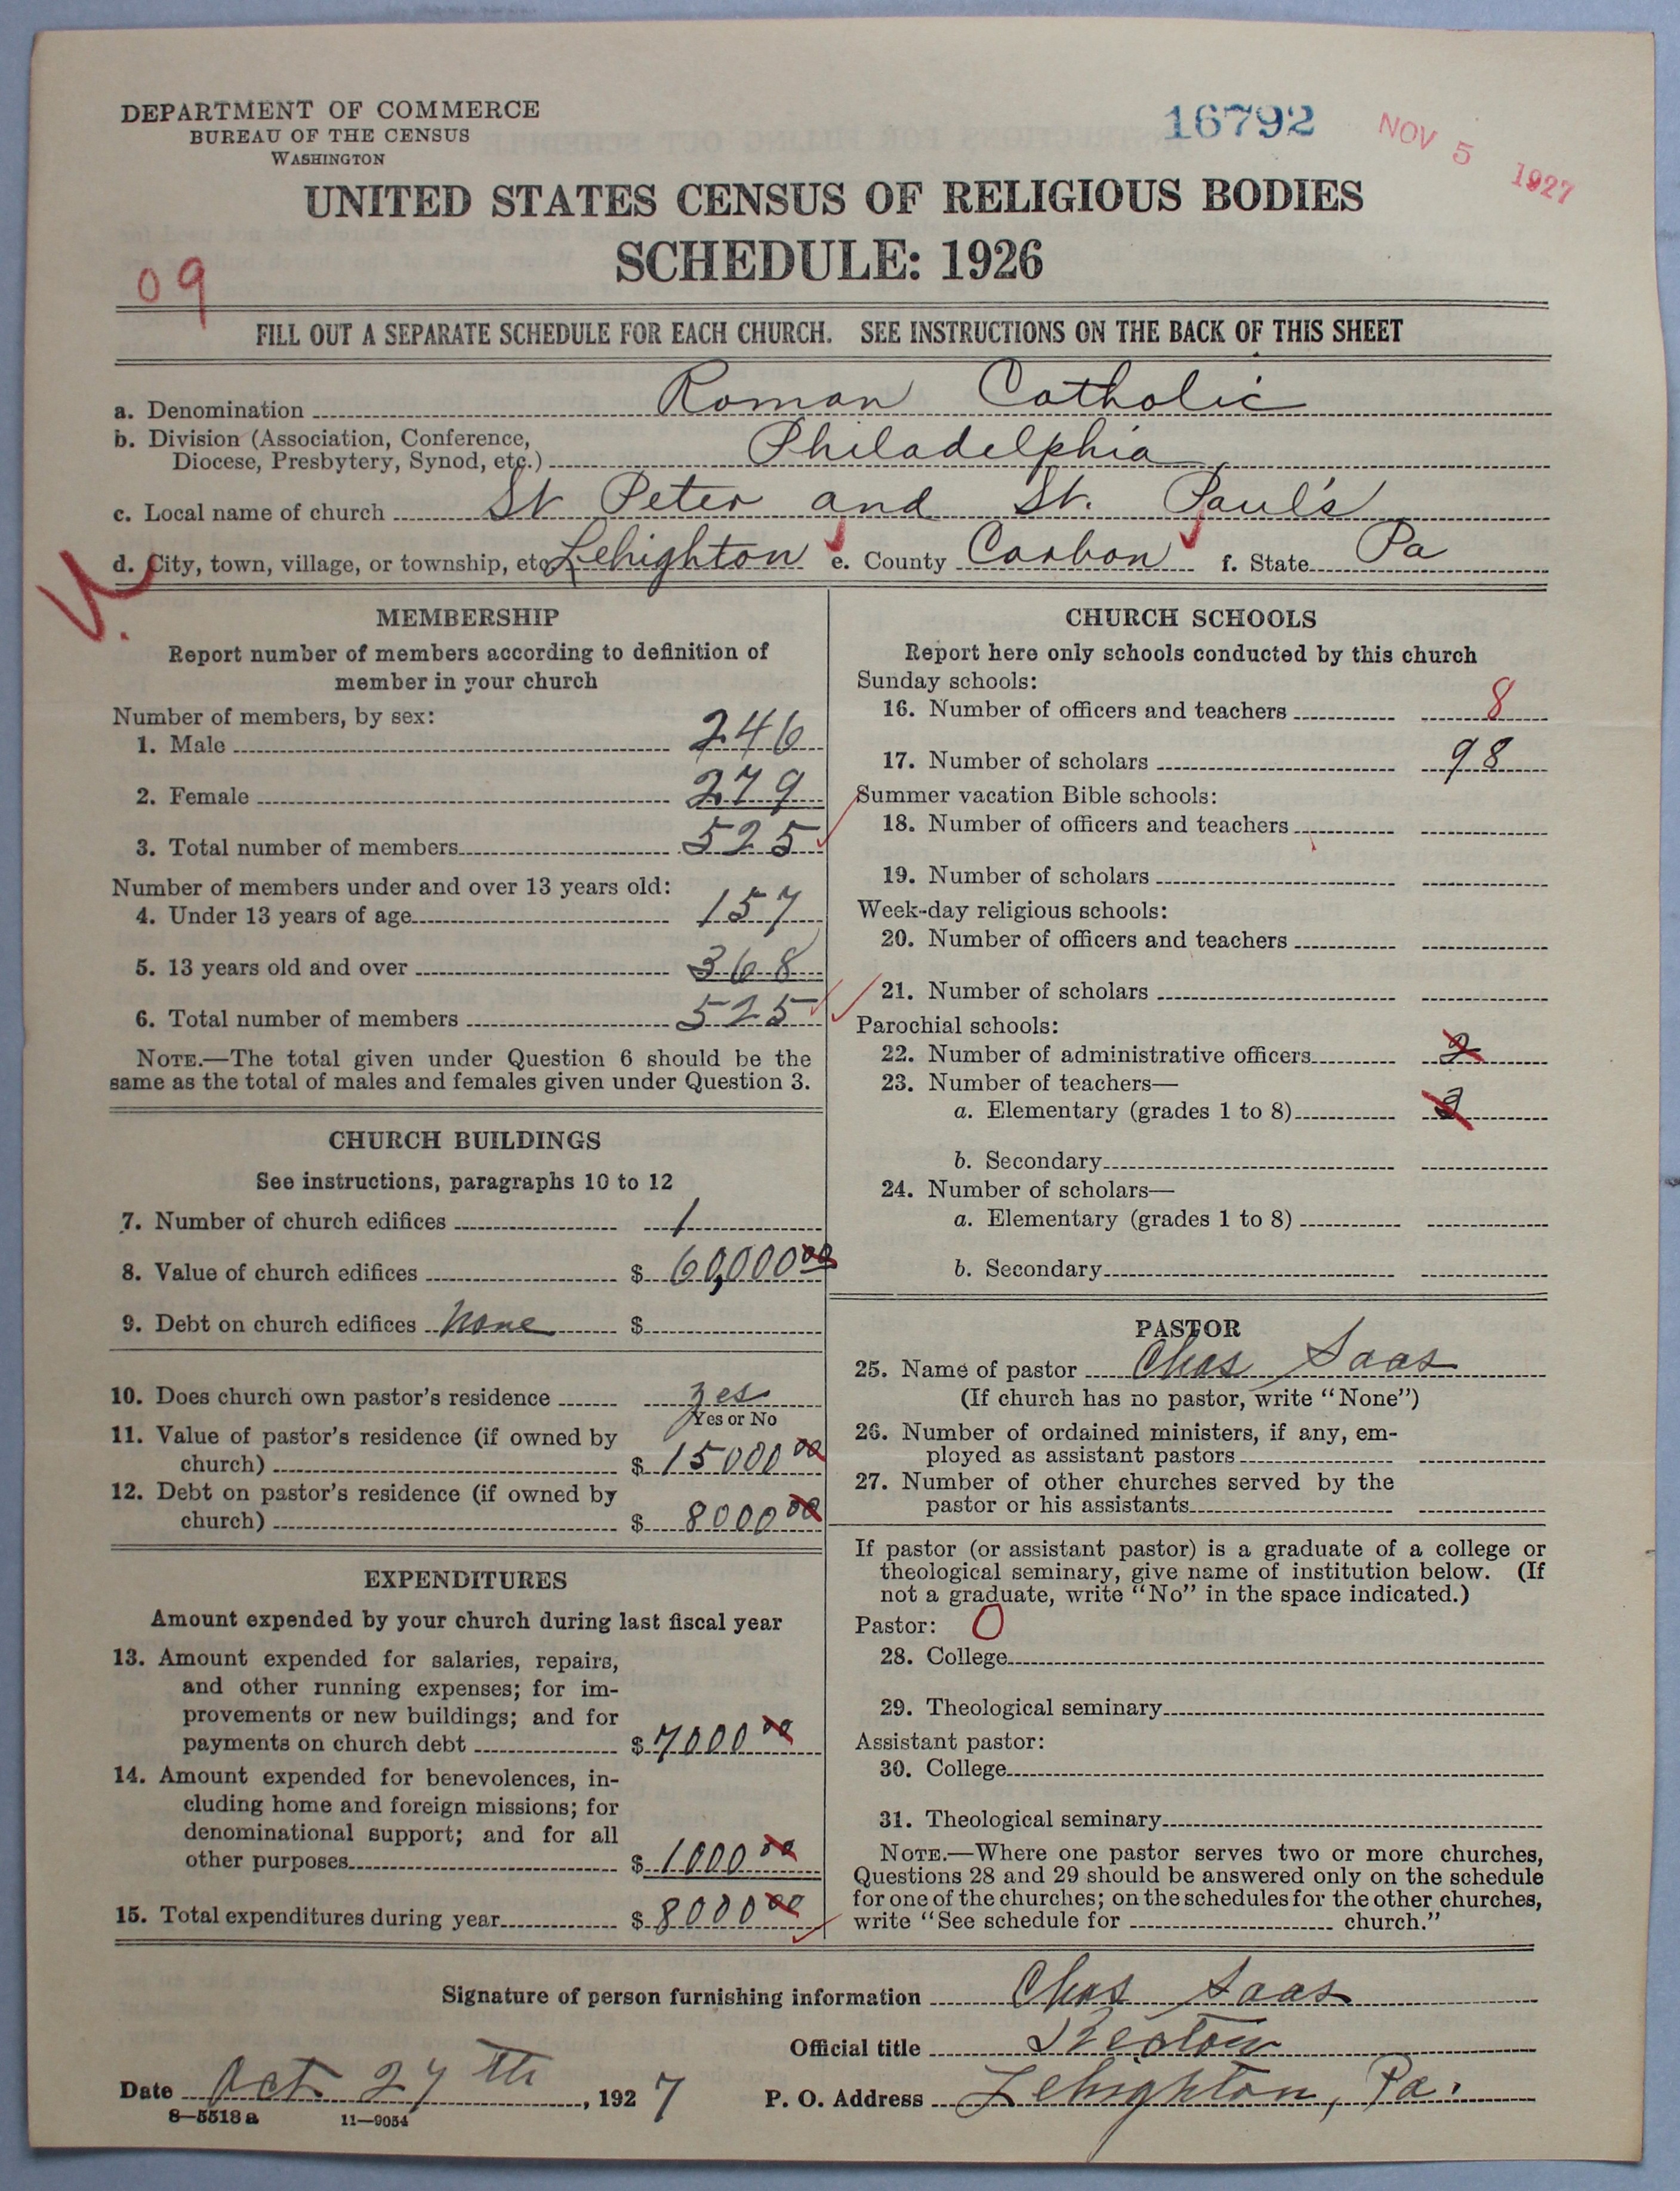 DEPARTMENT OF COMMERCE
BUREAU OF THE CENSUS
WASHINGTON
16792
NOV 5 1927
UNITED STATES CENSUS OF RELIGIOUS BODIES
SCHEDULE: 1926
09
FILL OUT A SEPARATE SCHEDULE FOR EACH CHURCH. SEE INSTRUCTIONS ON THE BACK OF THIS SHEET
a. Denomination Roman Catholic
b. Division (Association, Conference,
Diocese, Presbytery, Synod, etc.) Philadelphia
c. Local name of church St Peter and St. Paul's
d. City, town, village, or township, etc. Lehighton e. County Carbon f. State Pa
MEMBERSHIP
Report number of members according to definition of
member in your church
Number of members, by sex:
1. Male 246
2. Female 279
3. Total number of members 525
Number of members under and over 13 years old:
4. Under 13 years of age 157
5. 13 years old and over 368
6. Total number of members 525
NOTE.—The total given under Question 6 should be the
same as the total of males and females given under Question 3.
CHURCH BUILDINGS
See instructions, paragraphs 10 to 12
7. Number of church edifices 1
8. Value of church edifices $ 60,000 00
9. Debt on church edifices None $
10. Does church own pastor's residence yes
Yes or No
11. Value of pastor's residence (if owned by
church) $ 15000 00
12. Debt on pastor's residence (if owned by
church) $ 8000 00
EXPENDITURES
Amount expended by your church during last fiscal year
13. Amount expended for salaries, repairs,
and other running expenses; for im-
provements or new buildings; and for
payments on church debt $ 7000 00
14. Amount expended for benevolences, in-
cluding home and foreign missions; for
denominational support; and for all
other purposes $ 1000 00
15. Total expenditures during year $ 8000 00
CHURCH SCHOOLS
Report here only schools conducted by this church
Sunday schools:
16. Number of officers and teachers 8
17. Number of scholars 98
Summer vacation Bible schools:
18. Number of officers and teachers
19. Number of scholars
Week-day religious schools:
20. Number of officers and teachers
21. Number of scholars
Parochial schools:
22. Number of administrative officers 2
23. Number of teachers—
a. Elementary (grades 1 to 8)
b. Secondary
24. Number of scholars—
a. Elementary (grades 1 to 8)
b. Secondary
PASTOR
25. Name of pastor Chas Saas
(If church has no pastor, write "None")
26. Number of ordained ministers, if any, em-
ployed as assistant pastors
27. Number of other churches served by the
pastor or his assistants
If pastor (or assistant pastor) is a graduate of a college or
theological seminary, give name of institution below. (If
not a graduate, write "No" in the space indicated.)
Pastor: 0
28. College
29. Theological seminary
Assistant pastor:
30. College
31. Theological seminary
NOTE.—Where one pastor serves two or more churches,
Questions 28 and 29 should be answered only on the schedule
for one of the churches; on the schedules for the other churches,
write "See schedule for church."
Signature of person furnishing information Chas Saas
Official title Rector
Date Oct 27th, 1927 P. O. Address Lehighton, Pa.
8—5518a 11—9054